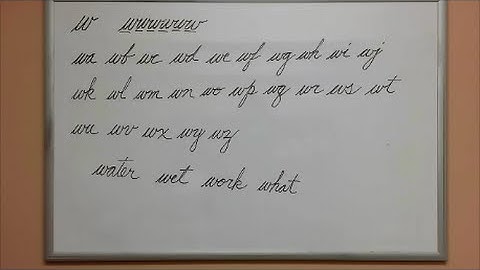 w wwwwww
wa wb wc wd we wf wg wh wi wj
wk wl wm wn wo wp wq wr ws wt
wu wv wx wy wz
water wet work what